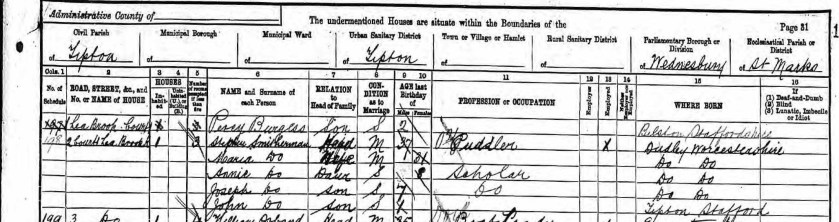 Administrative County of
The undermentioned Houses are situate within the Boundaries of the
Page 31
Civil Parish
Municipal Borough
Municipal Ward
Urban Sanitary District
Town or Village or Hamlet
Rural Sanitary District
Parliamentary Borough or Division
Ecclesiastical Parish or District
of Tipton of of of Tipton of of of Wednesbury of St Marks
Cols. 1 2 3 4 5 6 7 8 9 10 11 12 13 14 15 16
No. of Schedule
ROAD, STREET, &c., and No. or NAME of HOUSE
HOUSES
NAME and Surname of each Person
RELATION to Head of Family
CONDITION as to Marriage
AGE last Birthday of
Males Females
PROFESSION or OCCUPATION
Employer
Employed
WHERE BORN
If (1) Deaf-and-Dumb (2) Blind (3) Lunatic, Imbecile or Idiot
Lea Brook Court Percy Burgess Son S 2 Bilston Staffordshire
198 2 Court Lea Brook 1 3 Stephen Smitherman Head M 37 Puddler X Dudley Worcestershire
Maria Do Wife M Do Do
Annie Do Daur S 8 Scholar Do Do
Joseph Do Son S 7 Do Do Do
John Do Son S Tipton Stafford
199 3 Do 1 William Head M 35